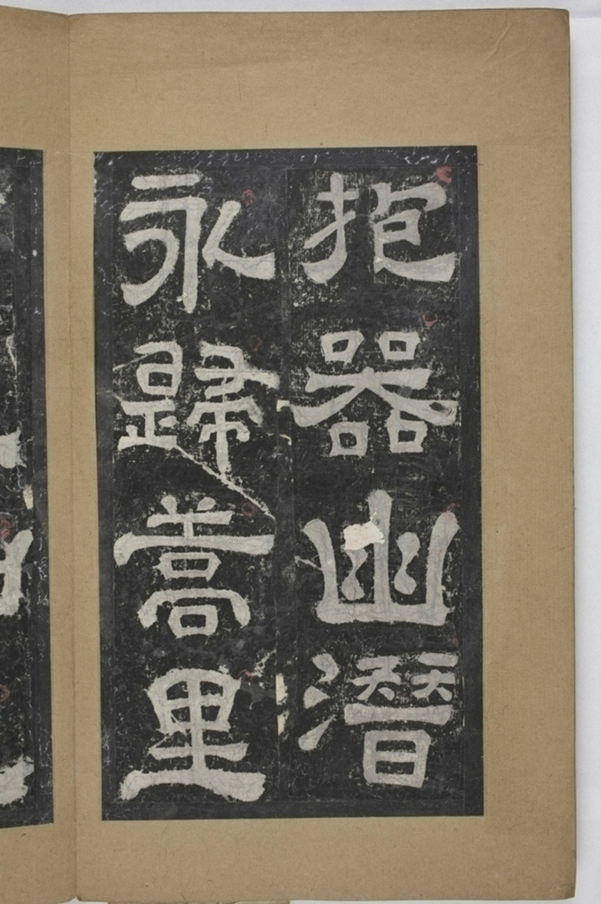 抱器幽潛
永歸蒿里